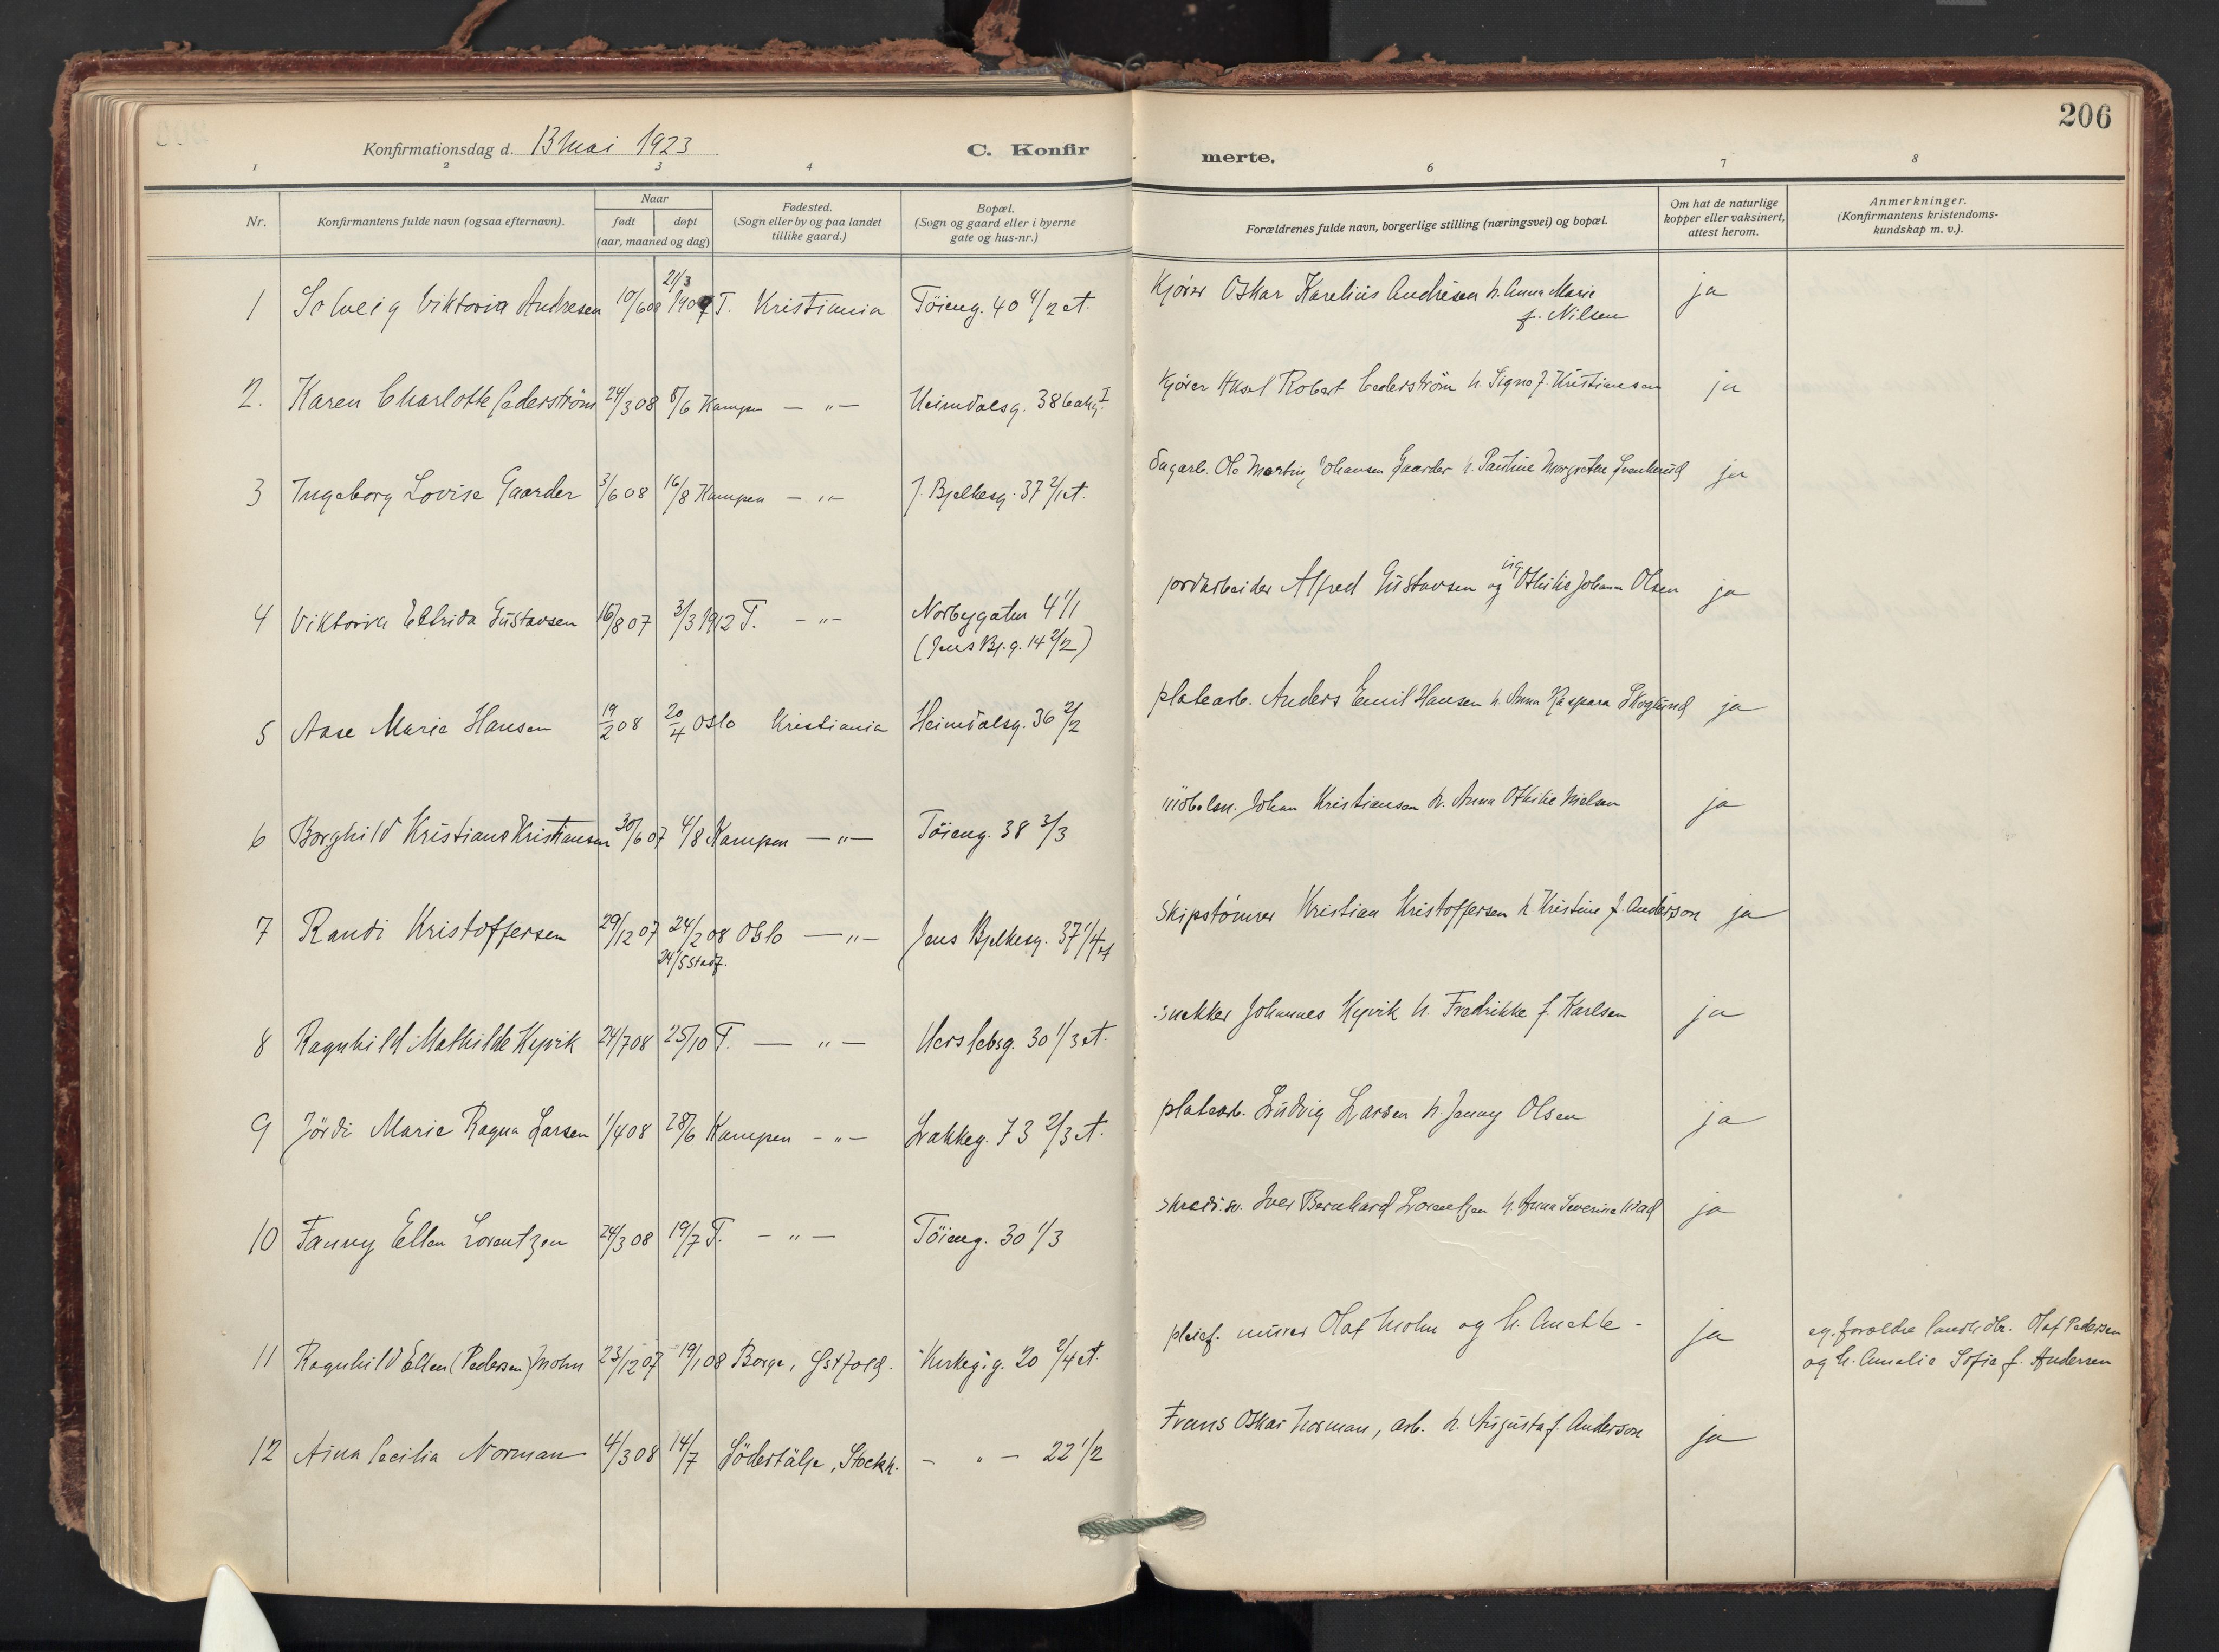 206
Konfirmationsdag d. 13 mai 1923
C. Konfirmerte.
1 2 3 4 6 7 8
Nr.
Konfirmantens fulde navn (ogsaa efternavn).
Naar
født døpt
(aar, maaned og dag)
Fødested.
(Sogn eller by og paa landet
tillike gaard.)
Bopæl.
(Sogn og gaard eller i byerne
gate og hus-nr.)
Forældrenes fulde navn, borgerlige stilling (næringsvei) og bopæl.
Om hat de naturlige
kopper eller vaksinert,
attest herom.
Anmerkninger.
(Konfirmantens kristendoms-
kundskap m. v.).
1 Solveig Viktoria Andresen 10/6 08 21/3 1909 T. Kristiania Töieng. 40 4/2 et. Kjörer Oskar Karelius Andresen h. Anna Marie
f. Nilsen ja
2. Karen Charlotte Cederström 24/3 08 8/6 Kampen — " — Heimdalsg. 38 bakg. I Kjörer Aksel Robert Cederström h. Signe f. Kristiansen ja
3 Ingeborg Lovise Gaarder 3/6 08 16/8 Kampen — " — J. Bjelkesg. 37 2/1 et. Dagarb. Ole Martin Johansen Gaarder h. Pauline Margrethe ja
4 Viktoria Elfrida Gustavsen 16/8 07 3/3 1912 T. — " — Norbygaten 4 1/1
(Jens Bj.g. 14 2/2) jordarbeider Alfred Gustavsen og ug. Othilie Johanne Olsen ja
5 Aase Marie Hansen 19/2 08 20/4 Oslo Kristiania Heimdalsg. 36 2/2 platearb. Anders Emil Hansen h. Anna Kaspara Skoglund ja
6 Borghild Kristiane Kristiansen 30/6 07 4/8 Kampen — " — Töieng. 38 3/3 möbelsn. Johan Kristiansen h. Anna Othilie Nielsen ja
7 Randi Kristoffersen 29/12 07 24/2 08 Oslo — " — Jens Bjelkesg. 37 1/4 et
24/5 stadf. Skipstömrer Kristian Kristoffersen h. Kristine f. Anderson ja
8 Ragnhild Mathilde Hyvik 24/7 08 25/10 T. — " — Herslebsg. 30 1/3 et. snekker Johannes Hyvik h. Fredrikke f. Karlsen ja
9 Jördi Marie Ragna Larsen 1/4 08 28/6 Kampen — " — Lakkeg. 73 2/3 et. platearb. Ludvig Larsen h. Jenny Olsen ja
10 Fanny Ellen Lorentzen 24/3 08 19/7 T. — " — Töieng. 30 1/3 skred.sv. Iver Bernhard Lorentzen h. Anna Severine ja
11 Ragnhild Ellen (Pedersen) Mohn 23/12 07 19/1 08 Borge, Østfold. Kirkeg.g. 20 2/4 et. pleief. murer Olaf Mohn og h. Anette - ja eg. foreldre landh.dr. Olaf Pedersen
og h. Amalie Sofie f. Andersen
12 Aina Cecilia Norman 4/3 08 14/7 Södertälje, Stockh. — " — 22 1/2 Frans Oskar Norman, arb. h. Augusta f. Anderson ja